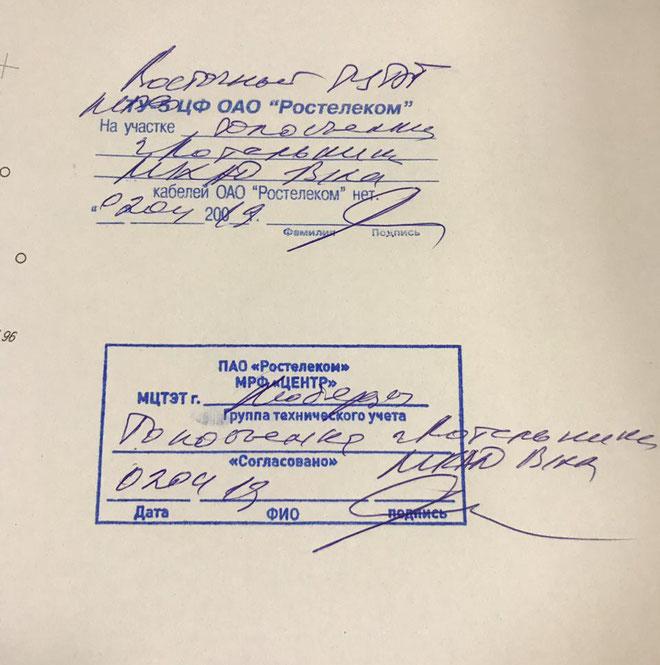 Восточный РЦТЭТ
ТУ-3 ЦФ ОАО "Ростелеком"
На участке топосъемка
г Котельники
МКАД
кабелей ОАО "Ростелеком" нет.
"0204 200 19 г.
Фамилия Подпись
96
ПАО «Ростелеком»
МРФ «ЦЕНТР»
МЦТЭТ г. Люберцы
Группа технического учета
Топосъемка г Котельники
«Согласовано» МКАД
0204 19
Дата ФИО подпись